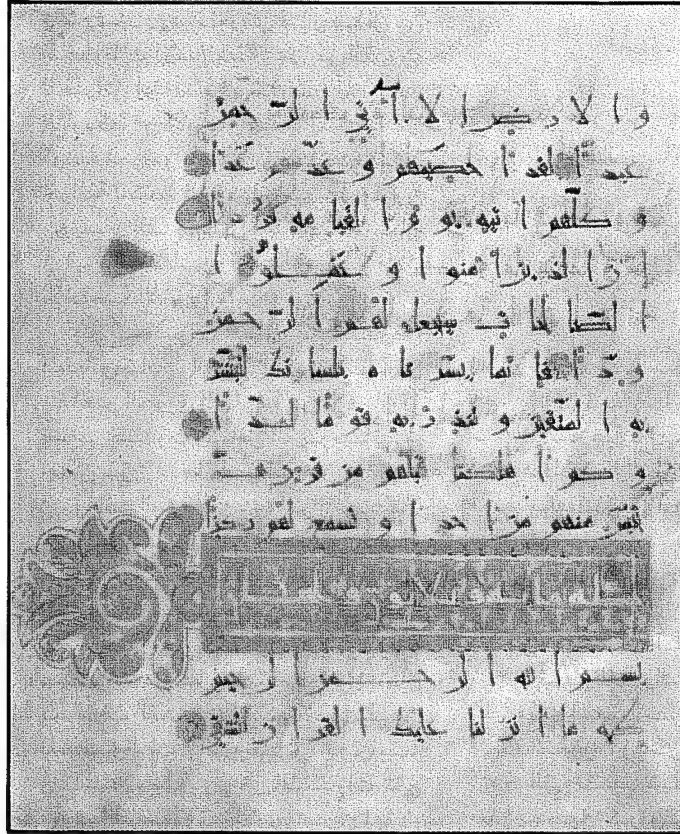 و الارض الا اتي الرحمن
عبدا لقد احصيهم و عدهم عدا
و كلهم اتيه يوم القيامه فردا
ان الذين امنوا و عملوا
الصالحات سيجعل لهم الرحمن
ودا فانما يسرناه بلسانك لتبشر
به المتقين و تنذر به قوما لدا
و كم اهلكنا قبلهم من قرن هل
تحس منهم من احد او تسمع لهم ركزا
بسم الله الرحمن الرحيم
طه ما انزلنا عليك القران لتشقى